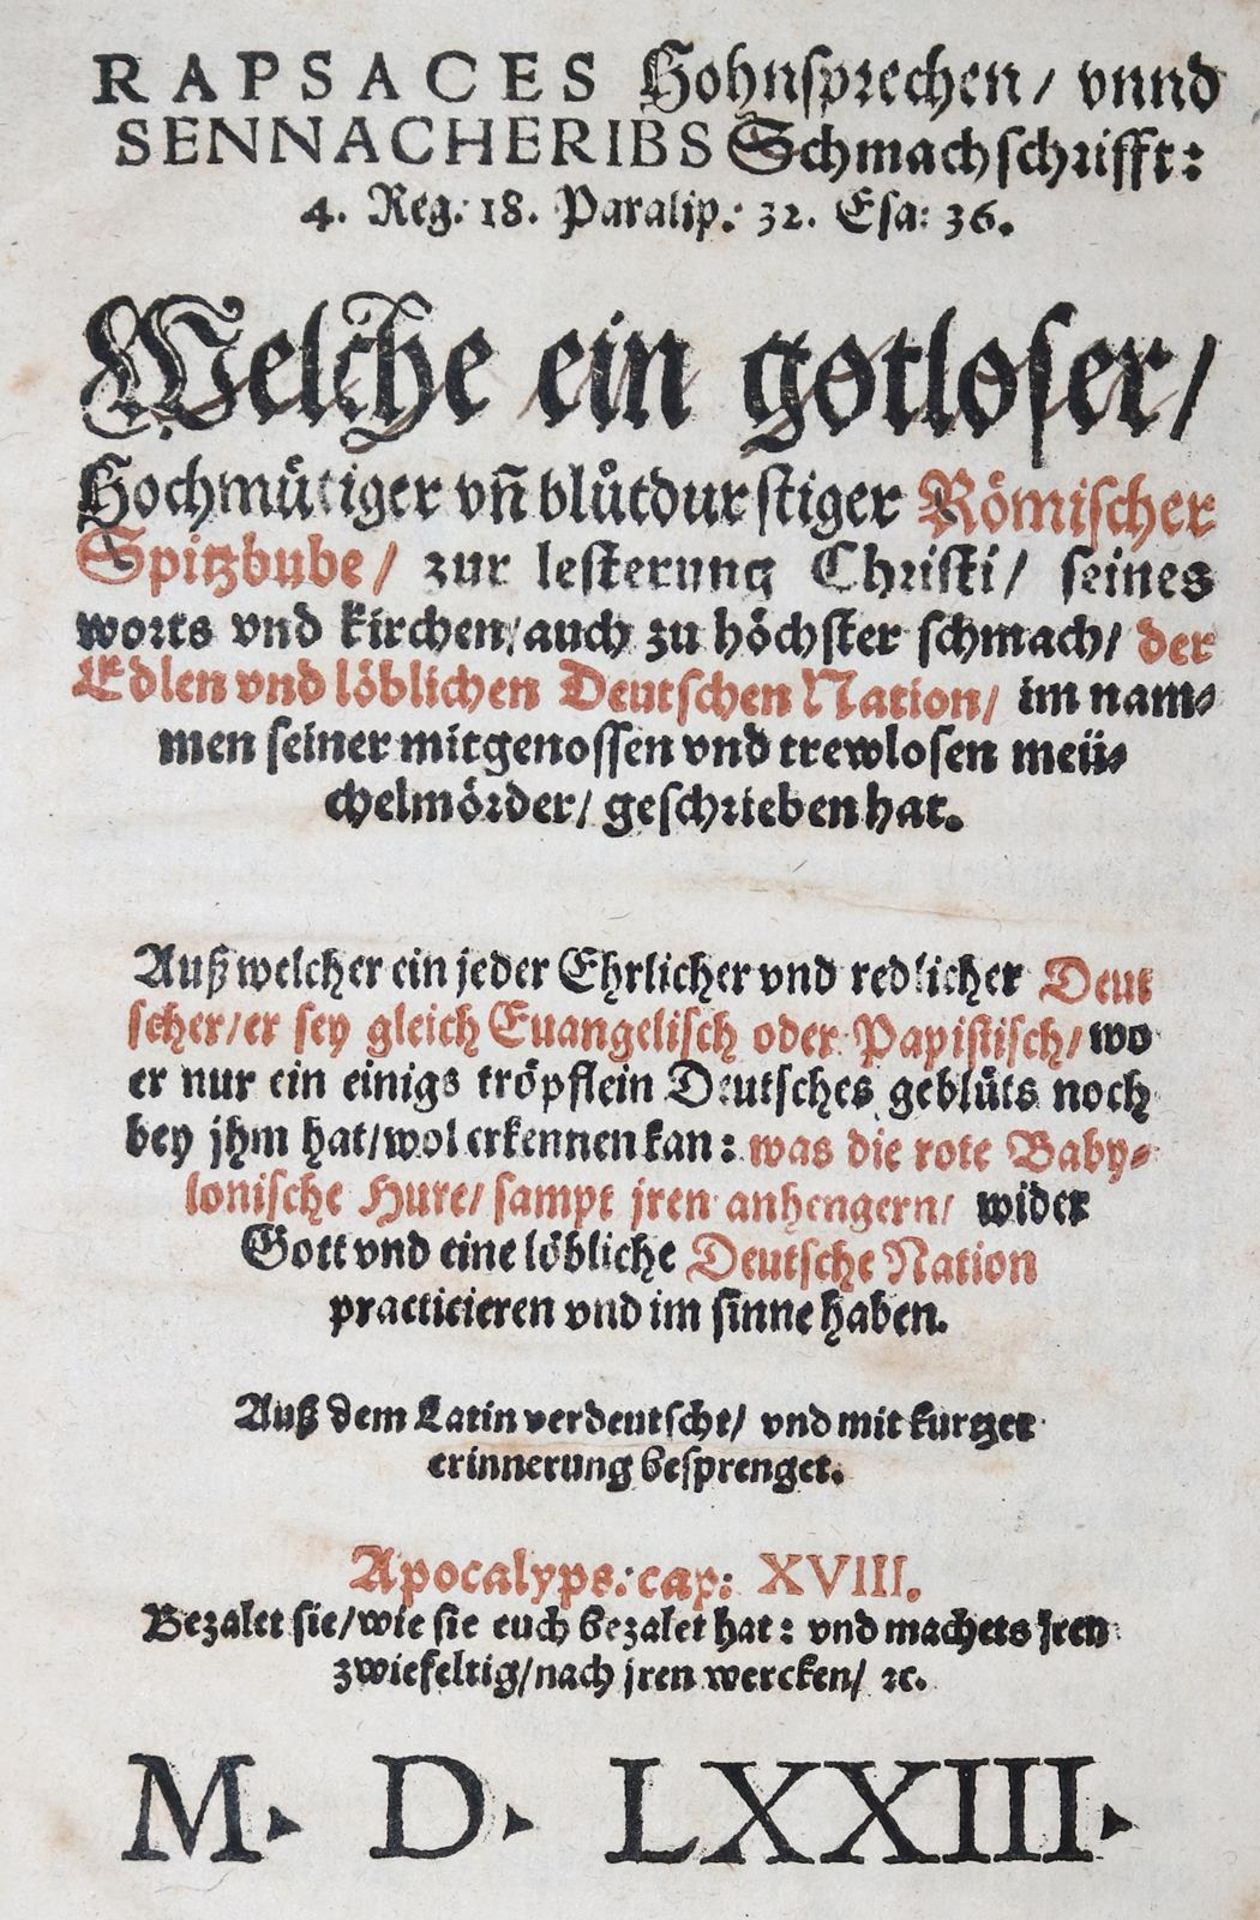 RAPSACES Hohnsprechen/ vnnd
SENNACHERIBS Schmachschrifft:
4. Reg: 18. Paralip: 32. Esa: 36.
Welche ein gotloser/
Hochmütiger vñ blůtdurstiger Römischer
Spitzbube/ zur lesterung Christi/ seines
worts vnd kirchen/auch zu höchster schmach/ der
Edlen vnd löblichen Deutschen Nation/ im nam⸗
men seiner mitgenossen vnd trewlosen meü⸗
chelmörder/ geschrieben hat.
Auß welcher ein jeder Ehrlicher vnd redlicher Deut
scher/er sey gleich Euangelisch oder Papistisch/ wo
er nur ein einigs tröpflein Deutsches geblüts noch
bey jhm hat/wol erkennen kan: was die rote Baby⸗
lonische Hure/ sampt jren anhengern/ wider
Gott vnd eine löbliche Deutsche Nation
practicieren vnd im sinne haben.
Auß dem Latin verdeutscht/ vnd mit kurtzer
erinnerung besprenget.
Apocalyps: cap: XVIII.
Bezalet sie/wie sie euch bezalet hat: vnd machets jren
zwiefeltig/nach jren wercken/ ꝛc.
M. D. LXXIII.